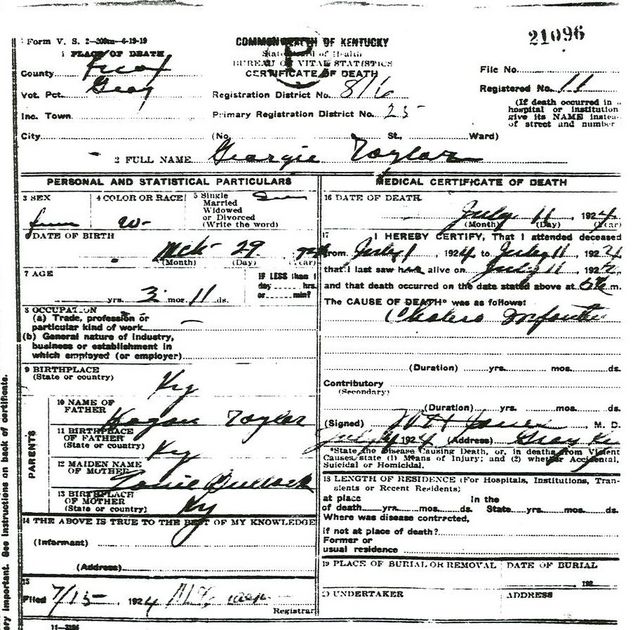 Form V. S. 2-200m-6-19-19
1 PLACE OF DEATH
County Knox
Vot. Pct. Gray
Inc. Town
City
COMMONWEALTH OF KENTUCKY
State Board of Health
BUREAU OF VITAL STATISTICS
CERTIFICATE OF DEATH
Registration District No. 816
Primary Registration District No. 25
(No. St., Ward)
21096
File No.
Registered No. 11
(If death occurred in a
hospital or institution
give its NAME instead
of street and number
2 FULL NAME Georgie Taylor
PERSONAL AND STATISTICAL PARTICULARS
3 SEX
4 COLOR OR RACE W
5 Single
Married
Widowed
or Divorced
(Write the word)
6 DATE OF BIRTH
Mch 29
(Month) (Day) (Year)
7 AGE
yrs. 3 mos. 11 ds.
IF LESS than 1
day hrs.
or min?
8 OCCUPATION
(a) Trade, profession or
particular kind of work
(b) General nature of industry,
business or establishment in
which employed (or employer)
9 BIRTHPLACE
(State or country) Ky
PARENTS
10 NAME OF
FATHER Taylor
11 BIRTHPLACE
OF FATHER
(State or country) Ky
12 MAIDEN NAME
OF MOTHER Bullock
13 BIRTHPLACE
OF MOTHER
(State or country) Ky
14 THE ABOVE IS TRUE TO THE BEST OF MY KNOWLEDGE
(Informant)
(Address)
15
Filed 7/15 1924
Registrar
11-3184
MEDICAL CERTIFICATE OF DEATH
16 DATE OF DEATH
July 11 1924
(Month) (Day) (Year)
17 I HEREBY CERTIFY, That I attended deceased
from July 1 1924 to July 11 1924
that I last saw h alive on July 11 192
and that death occurred on the date stated above at m.
The CAUSE OF DEATH* was as follows:
Cholera Infantum
(Duration) yrs. mos. ds.
Contributory
(Secondary)
(Duration) yrs. mos. ds.
(Signed) M. D.
1924 (Address) Gray Ky
*State the Disease Causing Death, or, in deaths from Violent
Causes, state (1) Means of Injury; and (2) whether Accidental,
Suicidal or Homicidal.
18 LENGTH OF RESIDENCE (For Hospitals, Institutions, Tran-
sients or Recent Residents)
at place In the
of death yrs. mos. ds. State yrs. mos. ds.
Where was disease contracted,
if not at place of death?
Former or
usual residence
19 PLACE OF BURIAL OR REMOVAL DATE OF BURIAL
192
UNDERTAKER ADDRESS
ry important. See instructions on back of certificate.